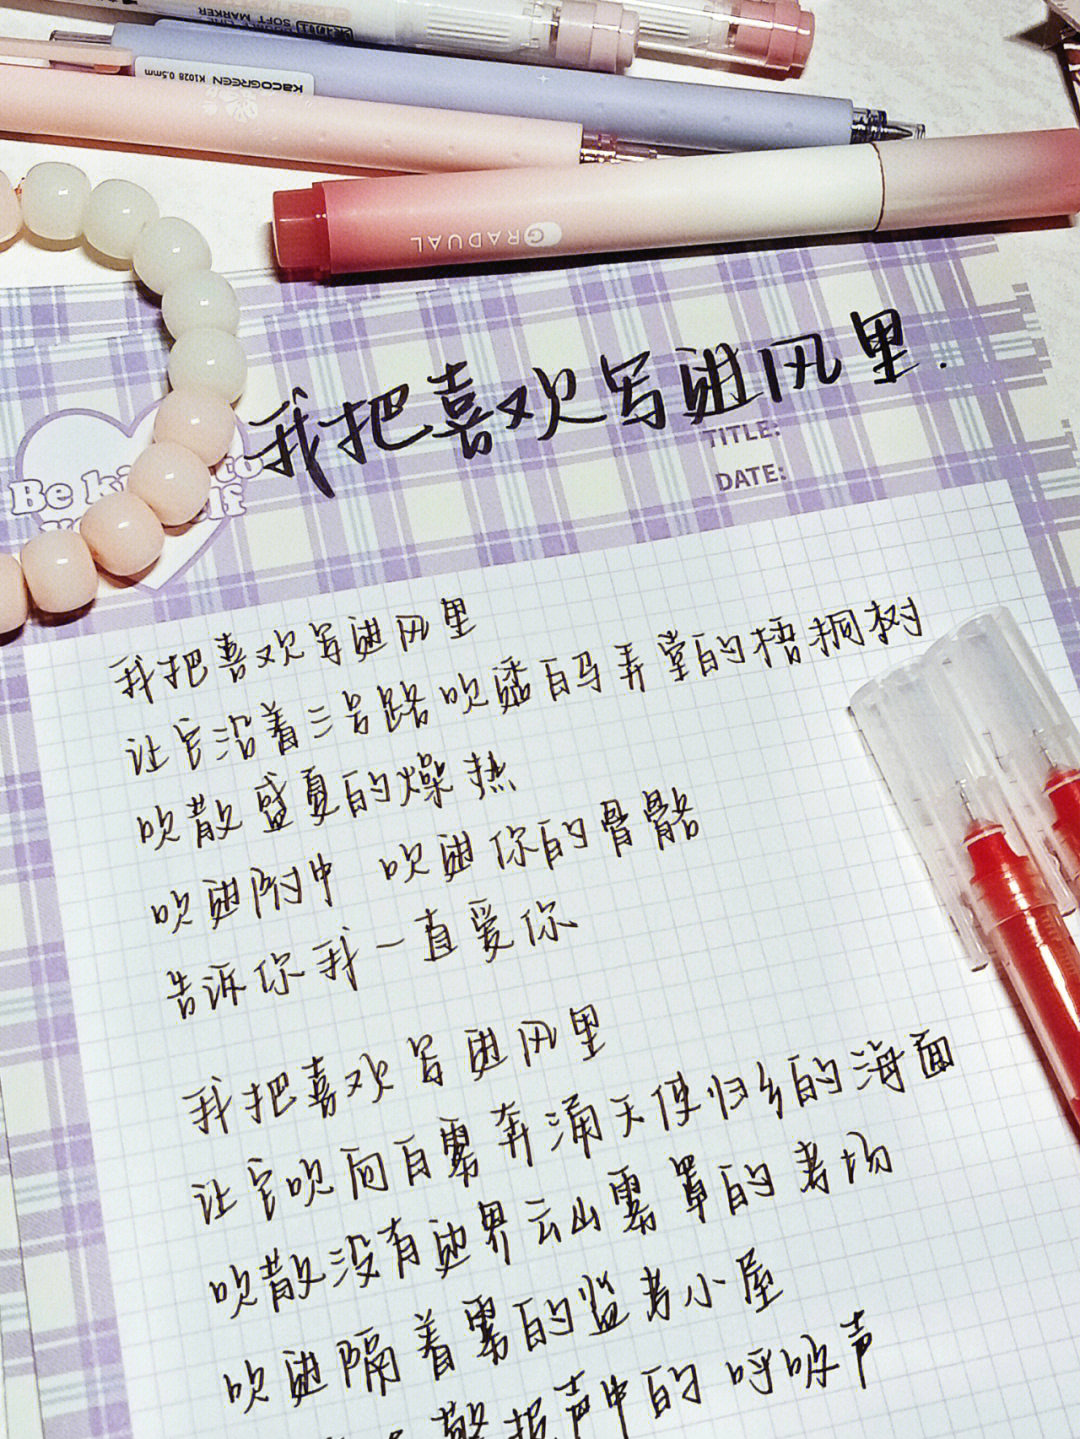 SOFT MARKER
KACOGREEN K1028 0.5mm
GRADUAL
我把喜欢写进风里.
TITLE:
DATE:
Be ki to
lf
我把喜欢写进风里
让它沿着三号路吹矮白马弄堂的梧桐树
吹散盛夏的燥热
吹进附中 吹进你的骨骼
告诉你我一直爱你
我把喜欢写进风里
让它吹向白雾奔涌天使归乡的海面
吹散没有边界云山雾罩的考场
吹进隔着雾的监考小屋
警报声中的呼吸声